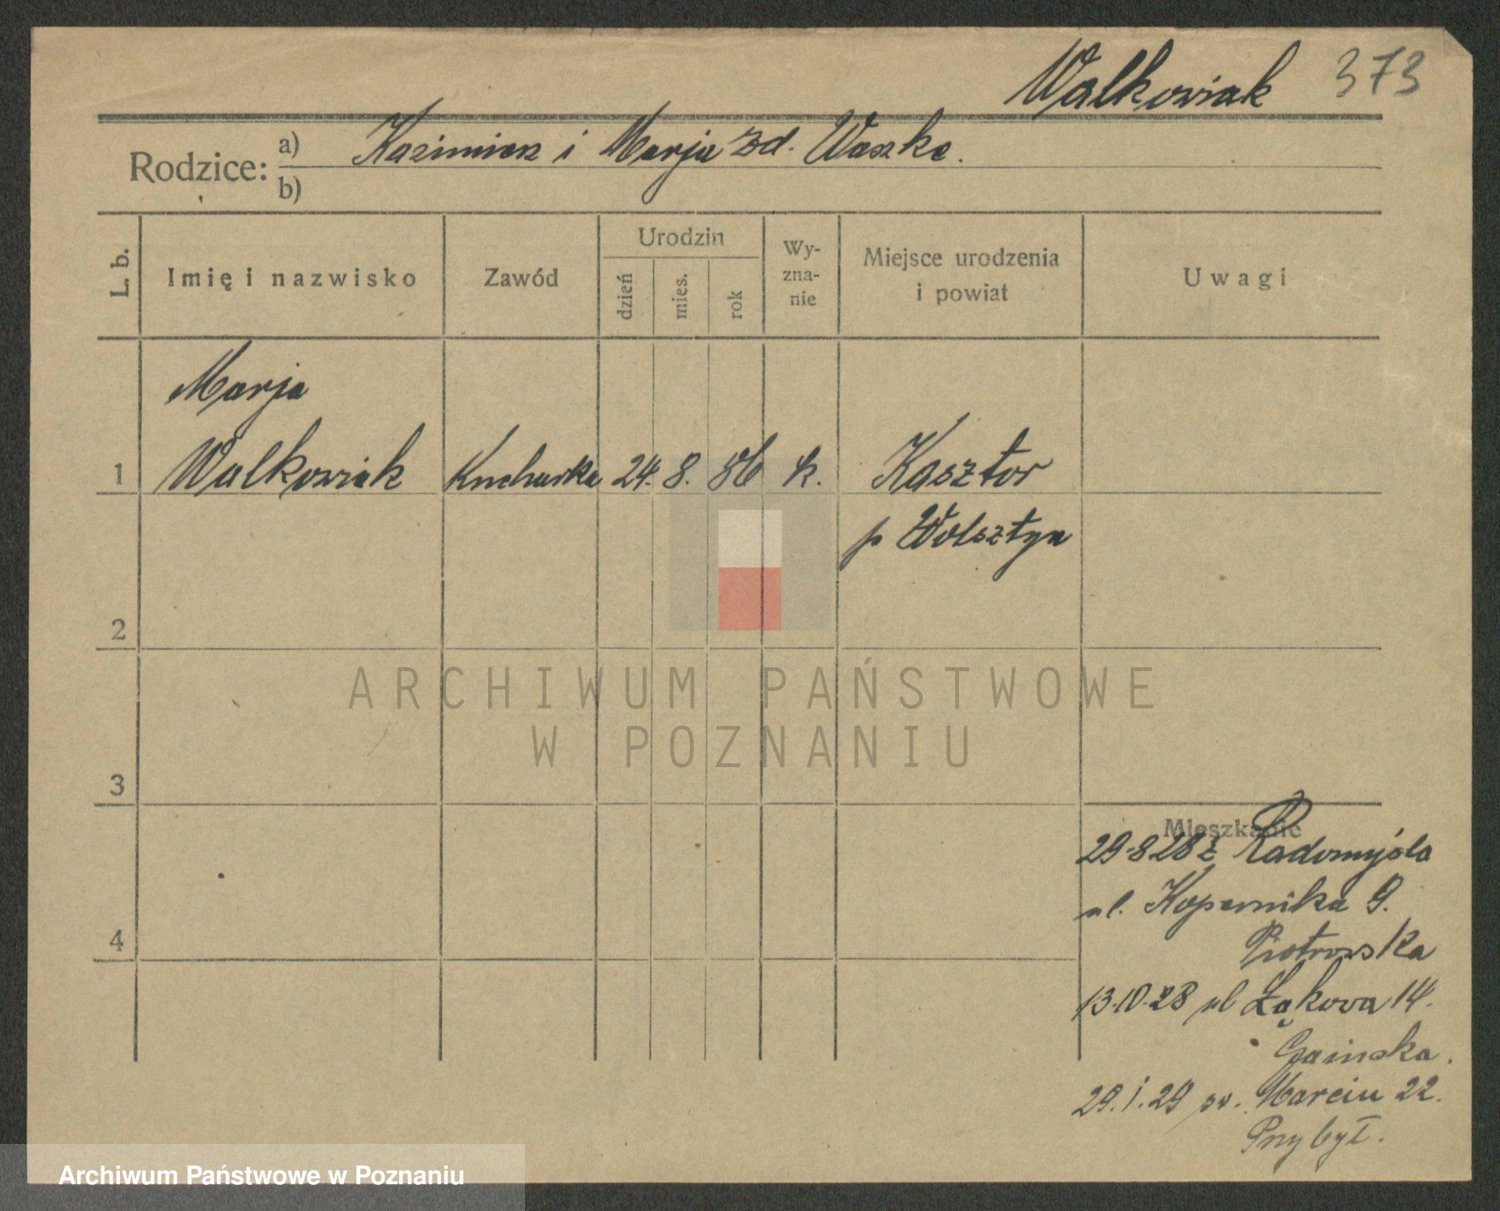 Walkowiak 373
Rodzice: a) Kazimierz i Marja zd. Waszke.
b)
L. b.
Imię i nazwisko
Zawód
Urodzin
dzień
mies.
rok
Wy-
zna-
nie
Miejsce urodzenia
i powiat
Uwagi
Marja
1 Walkowiak Kucharka 24. 8. 86 k. Kasztor
p Wolsztyn
2
ARCHIWUM PAŃSTWOWE
W POZNANIU
3
Mieszkanie
29-8 28 z Radomyśla
ul. Kopernika 9.
Piotrowska
4
13.10.28 ul Łąkowa 14.
29.1.29 św. Marcin 22.
Przybył.
Archiwum Państwowe w Poznaniu